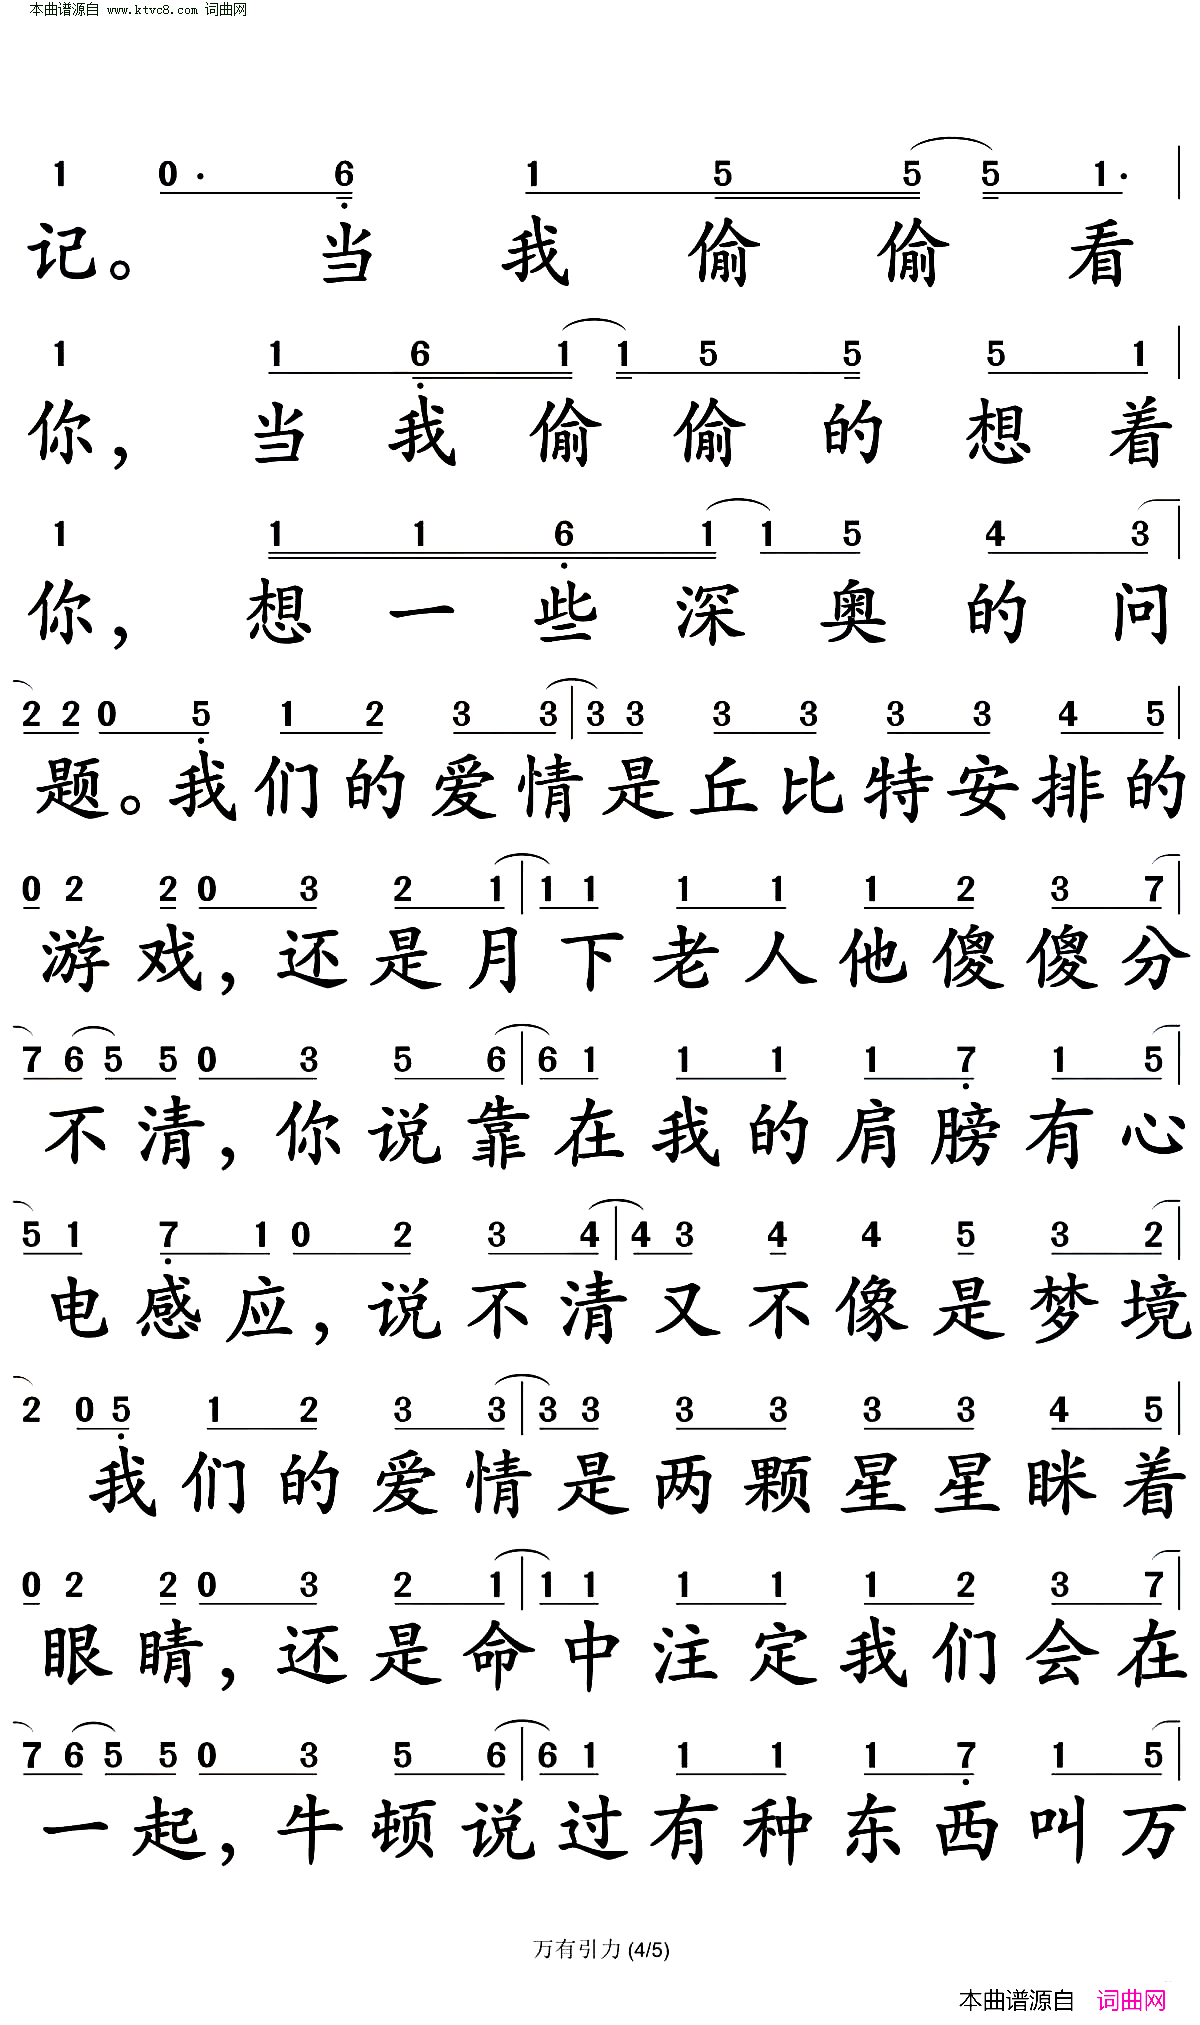 本曲谱源自 www.ktvc8.com 词曲网
1 0· 6 1 5 5 5 1·
记。 当 我 偷 偷 看
1 1 6 1 1 5 5 5 1
你, 当 我 偷 偷 的 想 着
1 1 1 6 1 1 5 4 3
你, 想 一 些 深 奥 的 问
2 2 0 5 1 2 3 3 3 3 3 3 3 3 4 5
题。我 们 的 爱 情 是 丘 比 特 安 排 的
0 2 2 0 3 2 1 1 1 1 1 1 2 3 7
游 戏, 还 是 月 下 老 人 他 傻 傻 分
7 6 5 5 0 3 5 6 6 1 1 1 1 7 1 5
不 清, 你 说 靠 在 我 的 肩 膀 有 心
5 1 7 1 0 2 3 4 4 3 4 4 5 3 2
电 感 应, 说 不 清 又 不 像 是 梦 境
2 0 5 1 2 3 3 3 3 3 3 3 3 4 5
我 们 的 爱 情 是 两 颗 星 星 眯 着
0 2 2 0 3 2 1 1 1 1 1 1 2 3 7
眼 睛, 还 是 命 中 注 定 我 们 会 在
7 6 5 5 0 3 5 6 6 1 1 1 1 7 1 5
一 起, 牛 顿 说 过 有 种 东 西 叫 万
万有引力 (4/5)
本曲谱源自 词曲网